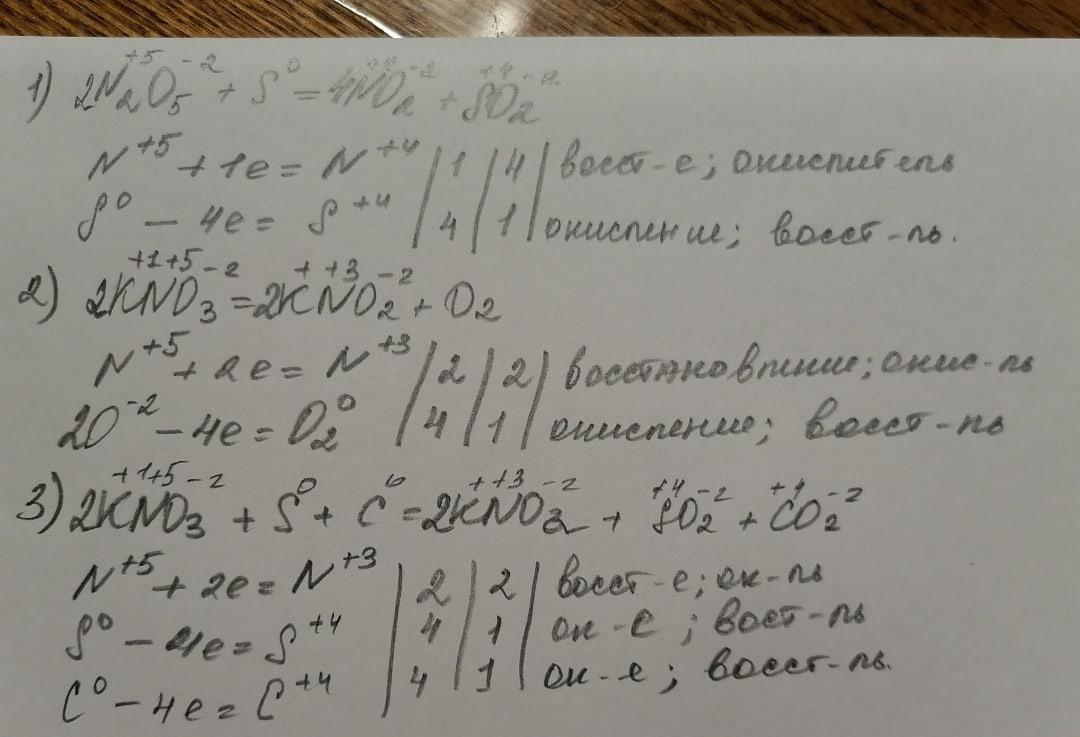 1) 2N₂⁺⁵O₅⁻² + S⁰ = 4N⁺⁴O₂⁻² + S⁺⁴O₂⁻²
N⁺⁵ + 1e = N⁺⁴ | 1 | 4 | восст-е; окислитель
S⁰ - 4e = S⁺⁴ | 4 | 1 | окисление; восст-ль.
2) 2K⁺¹N⁺⁵O₃⁻² = 2K⁺N⁺³O₂⁻² + O₂
N⁺⁵ + 2e = N⁺³ | 2 | 2 | восстановление; окис-ль
2O⁻² - 4e = O₂⁰ | 4 | 1 | окисление; восст-ль
3) 2K⁺¹N⁺⁵O₃⁻² + S⁰ + C⁰ = 2K⁺N⁺³O₂⁻² + S⁺⁴O₂⁻² + C⁺⁴O₂⁻²
N⁺⁵ + 2e = N⁺³ | 2 | 2 | восст-е; ок-ль
S⁰ - 4e = S⁺⁴ | 4 | 1 | ок-е; вост-ль
C⁰ - 4e = C⁺⁴ | 4 | 1 | ок-е; восст-ль.